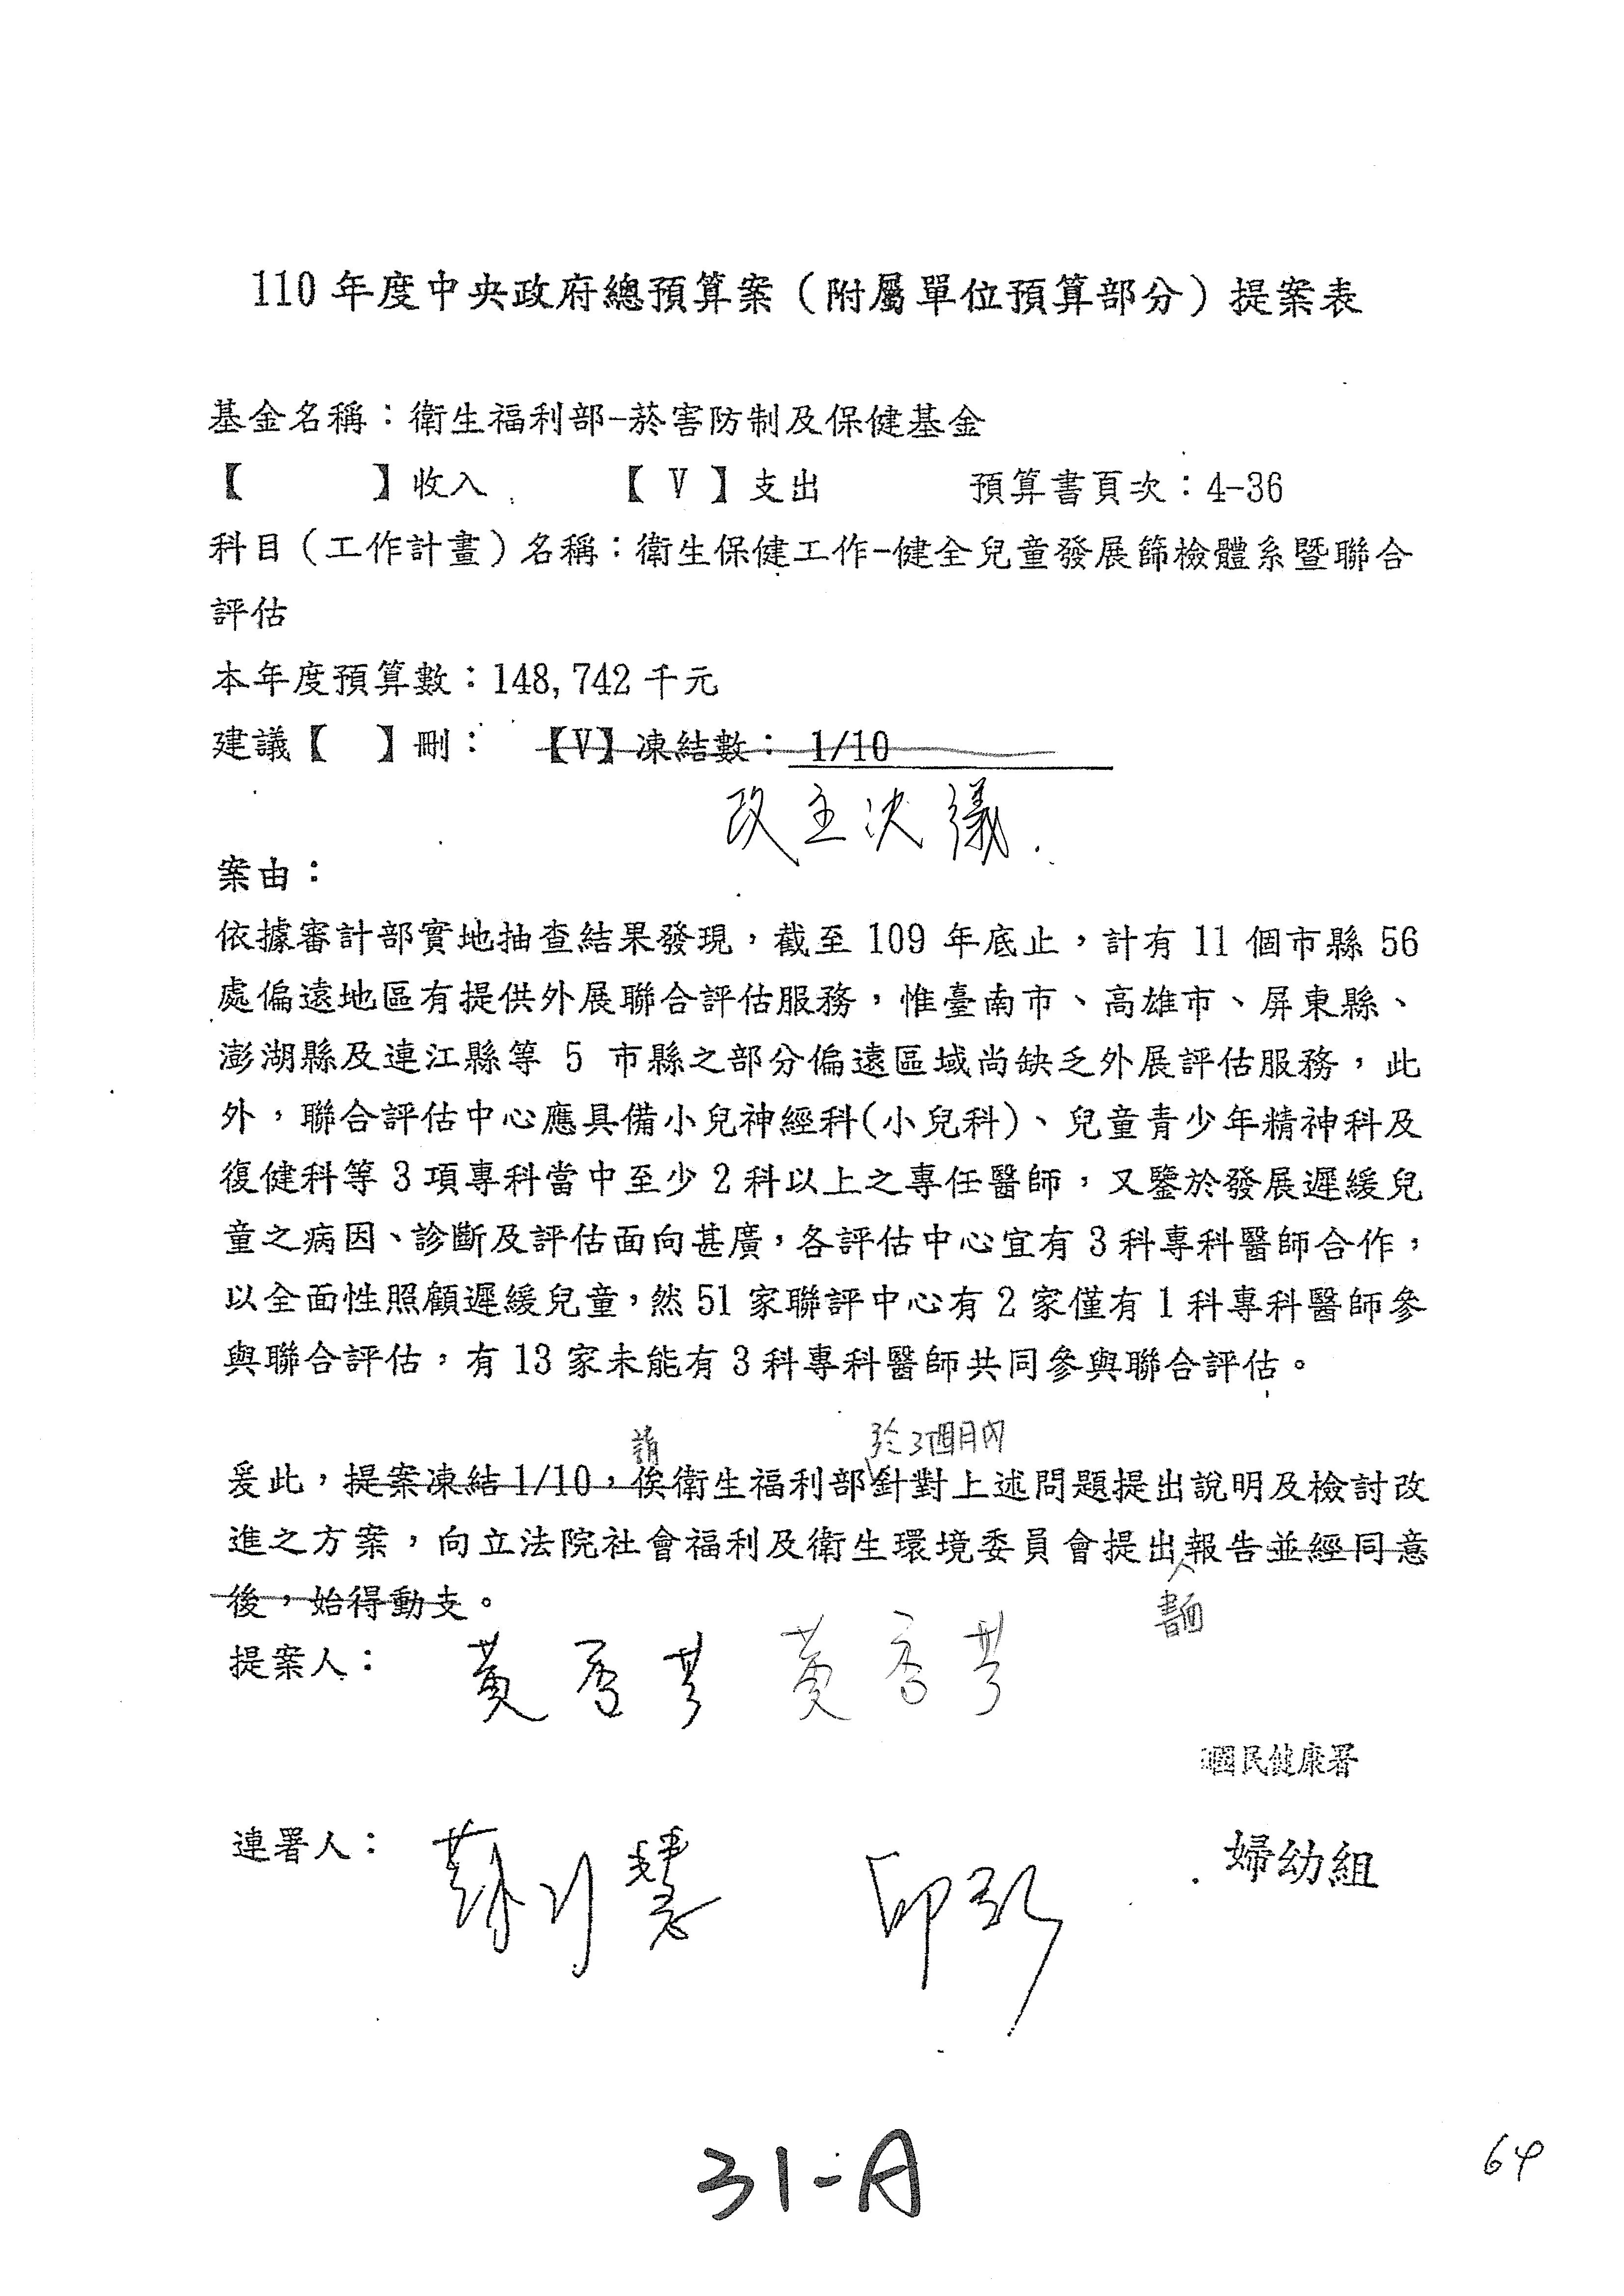 110 年度中央政府總預算案（附屬單位預算部分）提案表
基金名稱：衛生福利部-菸害防制及保健基金
【　　　】收入　　【 V 】支出　　預算書頁次：4-36
科目（工作計畫）名稱：衛生保健工作-健全兒童發展篩檢體系暨聯合
評估
本年度預算數：148,742 千元
建議【　】刪：　【V】凍結數： 1/10
改主決議.
案由：
依據審計部實地抽查結果發現，截至 109 年底止，計有 11 個市縣 56
處偏遠地區有提供外展聯合評估服務，惟臺南市、高雄市、屏東縣、
澎湖縣及連江縣等 5 市縣之部分偏遠區域尚缺乏外展評估服務，此
外，聯合評估中心應具備小兒神經科(小兒科)、兒童青少年精神科及
復健科等 3 項專科當中至少 2 科以上之專任醫師，又鑒於發展遲緩兒
童之病因、診斷及評估面向甚廣，各評估中心宜有 3 科專科醫師合作，
以全面性照顧遲緩兒童，然 51 家聯評中心有 2 家僅有 1 科專科醫師參
與聯合評估，有 13 家未能有 3 科專科醫師共同參與聯合評估。
請　於3個月內
爰此，提案凍結 1/10，俟衛生福利部針對上述問題提出說明及檢討改
進之方案，向立法院社會福利及衛生環境委員會提出報告並經同意
後，始得動支。
書面
提案人：黃秀芳 黃秀芳
國民健康署
連署人：
婦幼組
31-A
64